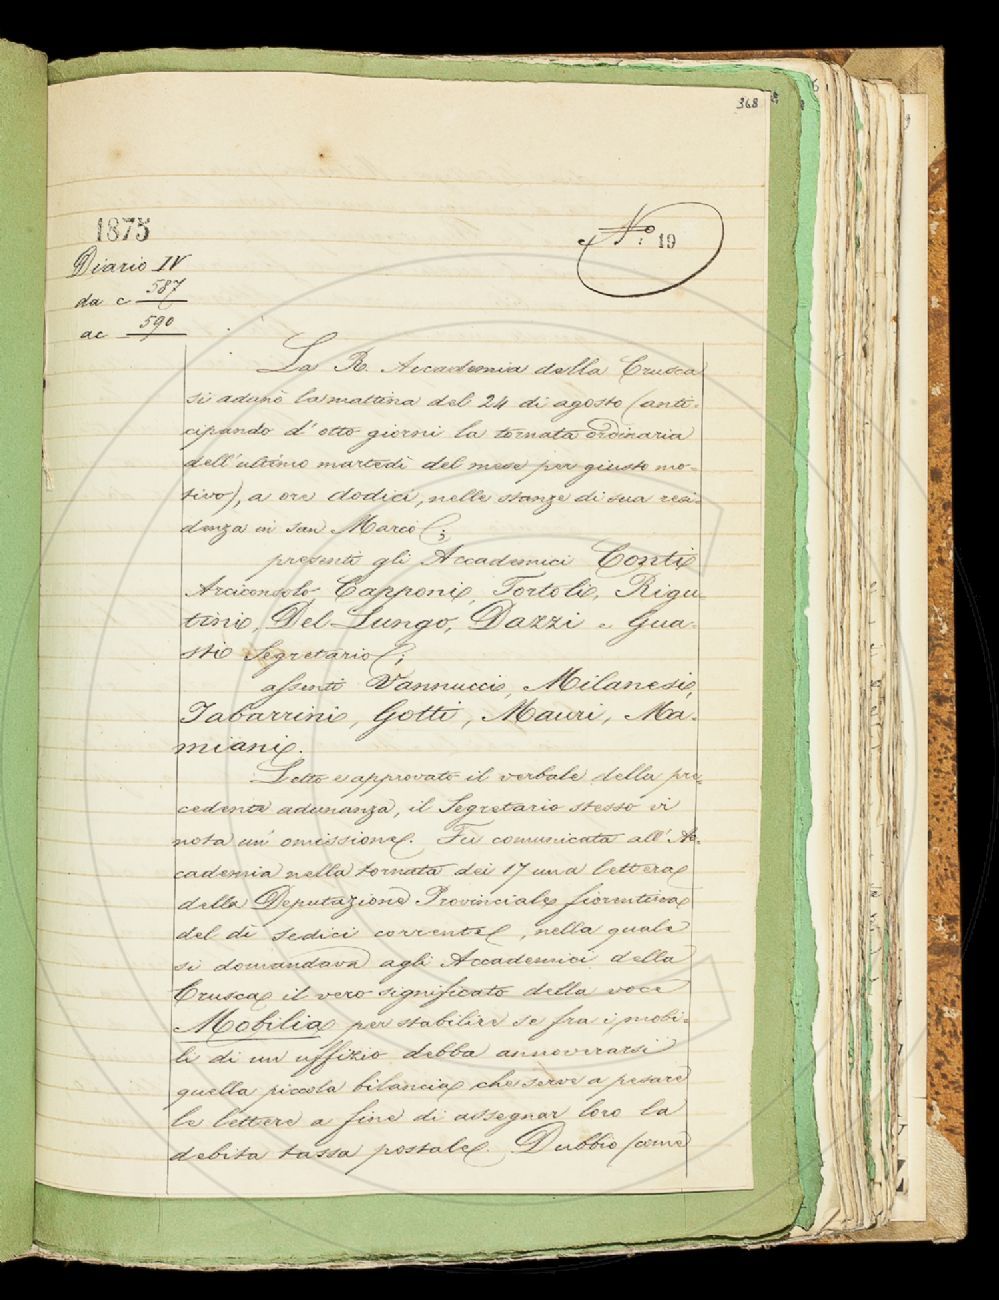 368
1875
Nº: 19
Diario IV
da c 587
a c 590
La R. Accademia della Crusca
si adunò la mattina del 24 di agosto (anti-
cipando d'otto giorni la tornata ordinaria
dell'ultimo martedì del mese per giusto mo-
tivo), a ore dodici, nelle stanze di sua resi-
denza in San Marco;
presenti gli Accademici Conti
Arciconsolo, Capponi, Tortoli, Rigu-
tini, Del-Lungo, Dazzi e Gua-
sti Segretario;
assenti Vannucci, Milanesi,
Tabarrini, Gotti, Mauri, Ma-
miani.
Letto e approvato il verbale della pre-
cedente adunanza, il Segretario stesso vi
nota un' omissione. Fu comunicata all' Ac-
cademia nella tornata dei 17 una lettera
della Deputazione Provinciale fiorentina
del dì sedici corrente, nella quale
si domandava agli Accademici della
Crusca il vero significato della voce
Mobilia per stabilire se fra i mobi-
li di un uffizio debba annoverarsi
quella piccola bilancia che serve a pesare
le lettere a fine di assegnar loro la
debita tassa postale. Dubbio (come